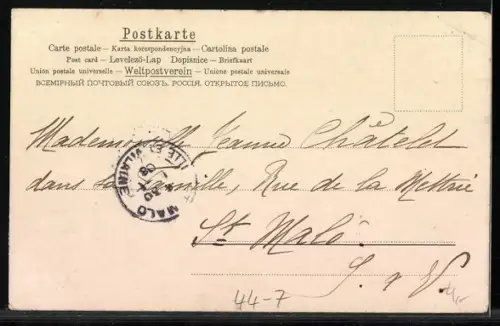 Postkarte
Carte postale — Karta korespondencyjna — Cartolina postale
Post card — Levelező-Lap Dopisnice — Briefkaart
Union postale universelle — Weltpostverein — Unione postale universale
ВСЕМІРНЫЙ ПОЧТОВЫЙ СОЮЗЪ. РОССІЯ. ОТКРЫТОЕ ПИСЬМО.
Jeanne Châtelet
dans sa famille, Rue de la Mettrie
St Malo
ILLE-ET-VILAINE
MALO
44-7